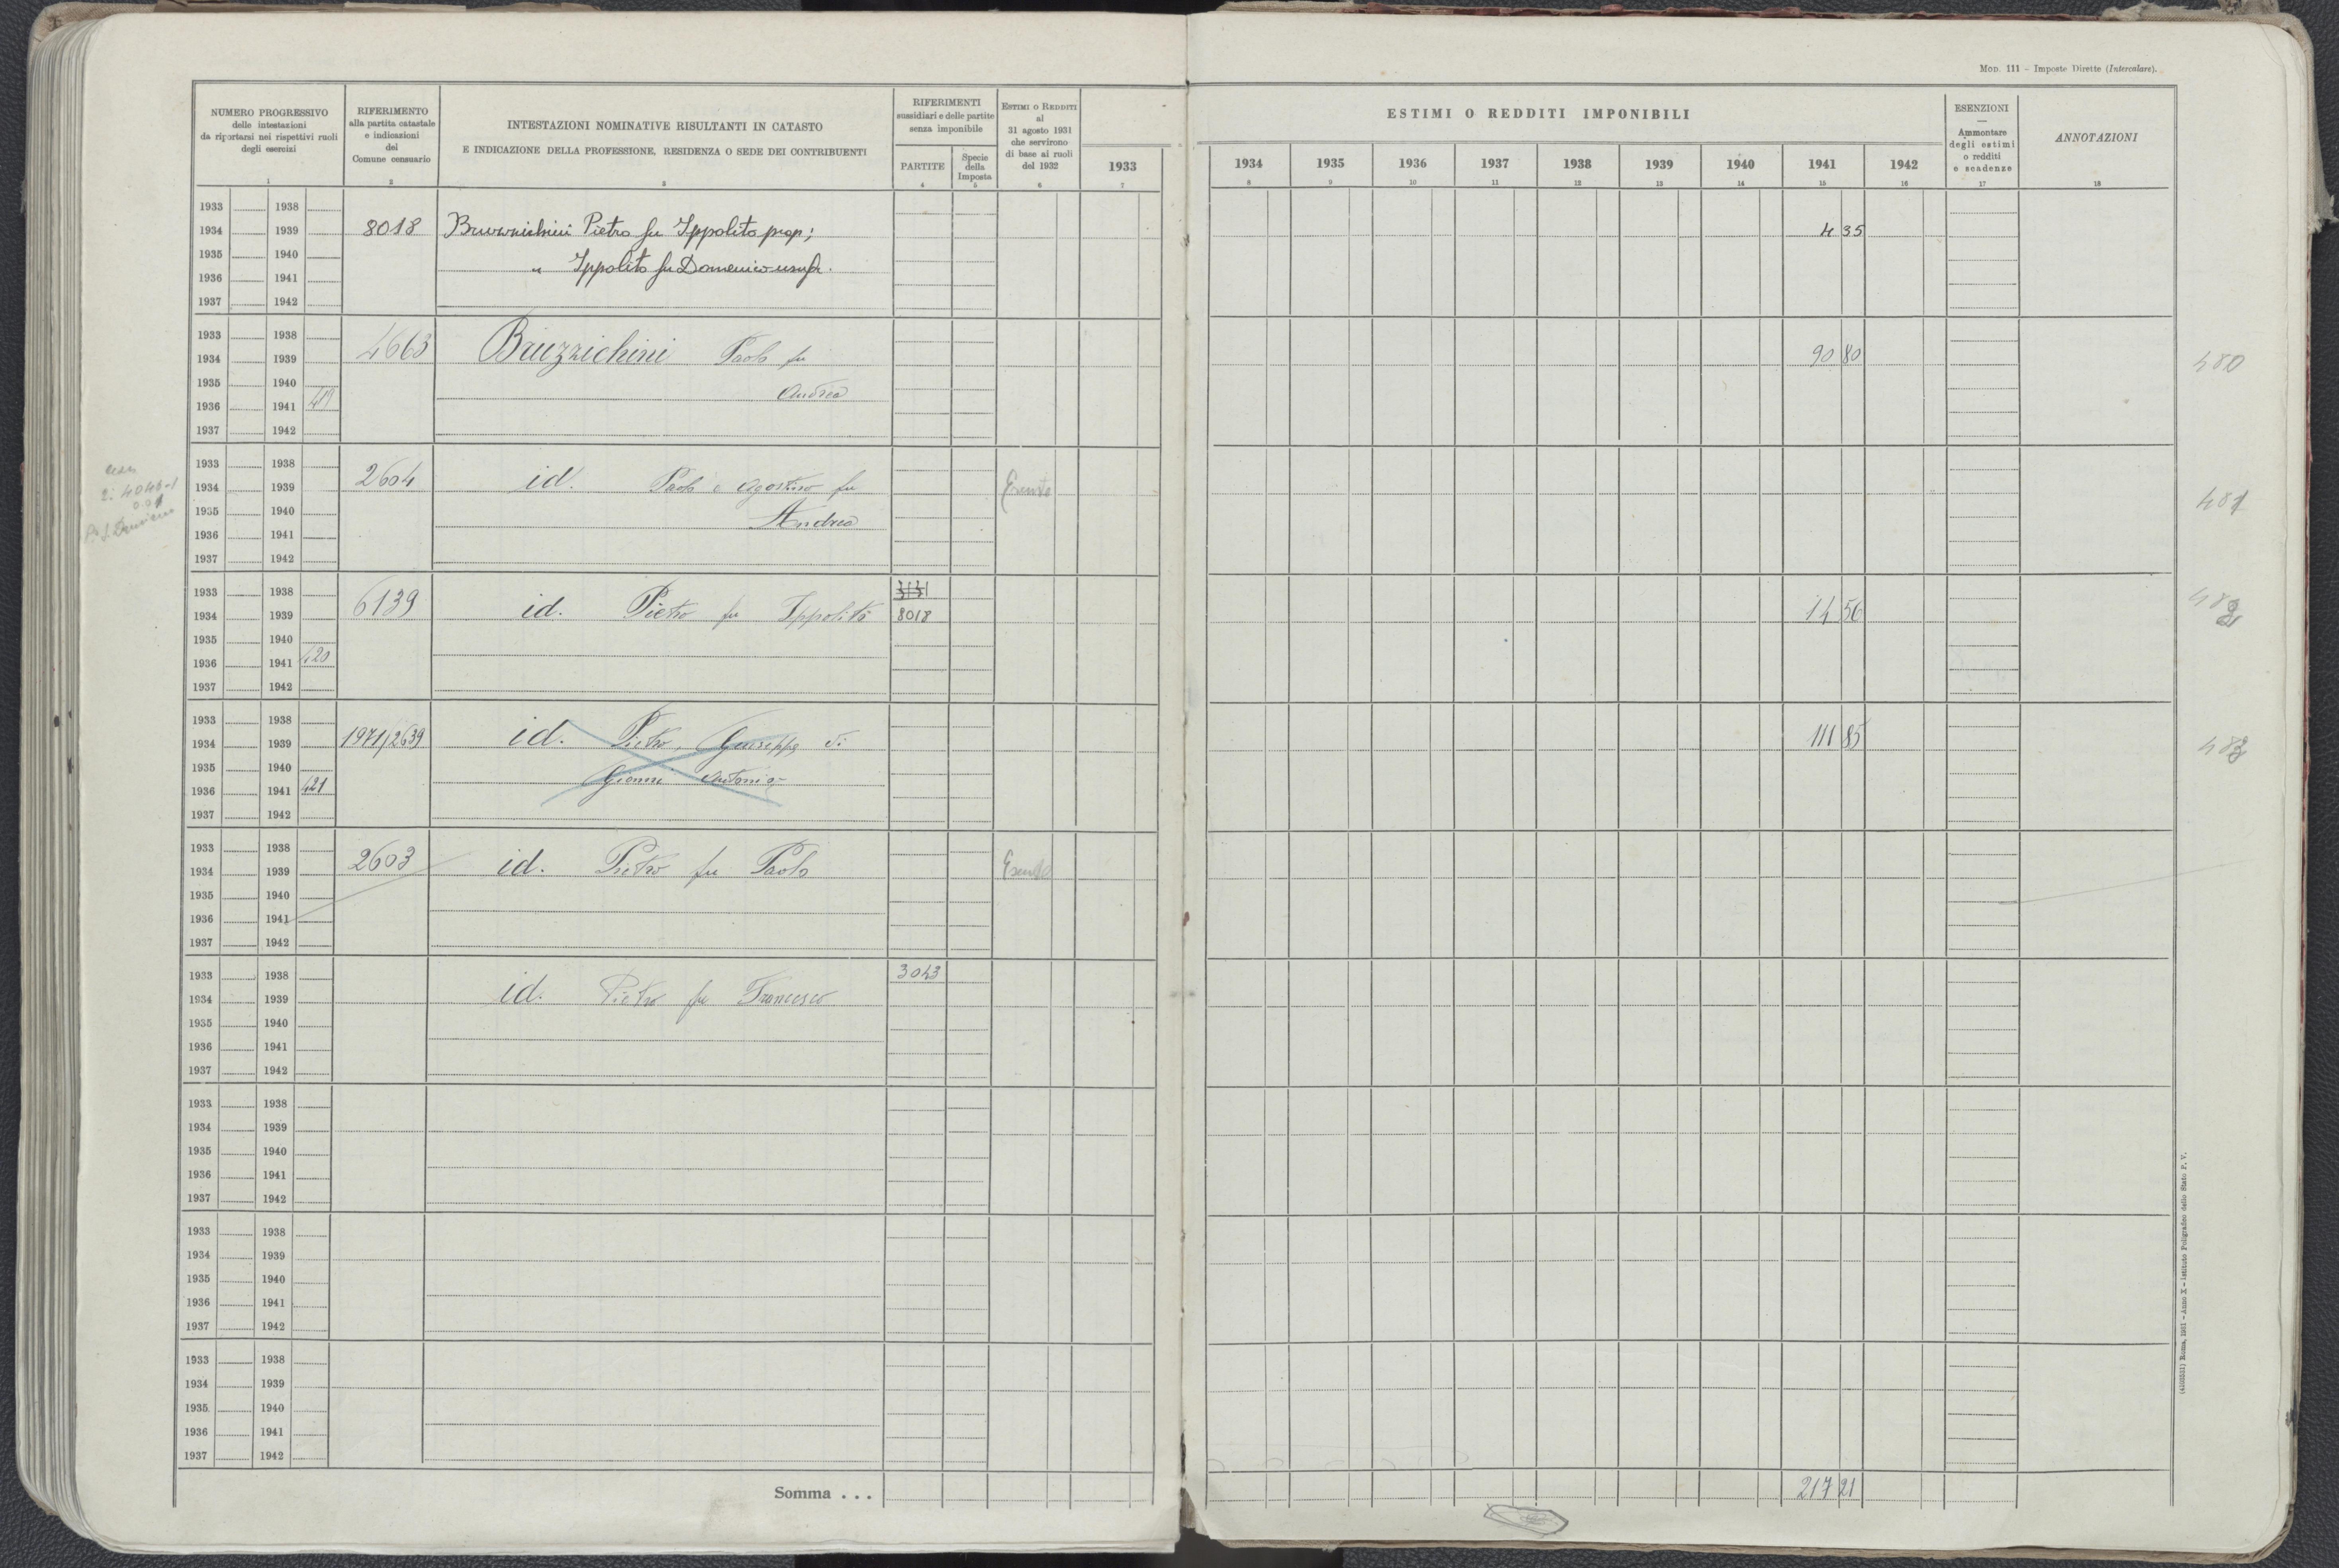 Mod. 111 - Imposte Dirette (Intercalare).
NUMERO PROGRESSIVO
delle intestazioni
da riportarsi nei rispettivi ruoli
degli esercizi
1
RIFERIMENTO
alla partita catastale
e indicazioni
del
Comune censuario
2
INTESTAZIONI NOMINATIVE RISULTANTI IN CATASTO
E INDICAZIONE DELLA PROFESSIONE, RESIDENZA O SEDE DEI CONTRIBUENTI
3
RIFERIMENTI
sussidiari e delle partite
senza imponibile
PARTITE
4
Specie
della
Imposta
5
ESTIMI O REDDITI
al
31 agosto 1931
che servirono
di base ai ruoli
del 1932
6
1933
7
ESTIMI O REDDITI IMPONIBILI
1934 1935 1936 1937 1938 1939 1940 1941 1942
8 9 10 11 12 13 14 15 16
ESENZIONI
—
Ammontare
degli estimi
o redditi
e scadenze
17
ANNOTAZIONI
18
1933 1938
1934 1939 8018 Bruzzichini Pietro fu Ippolito prop; 4 35
1935 1940 " Ippolito fu Domenico usufr.
1936 1941
1937 1942
1933 1938
1934 1939 4663 Bruzzichini Paolo fu 90 80 480
1935 1940 Andrea
1936 1941 419
1937 1942
1933 1938
1934 1939 2604 id. Paolo e Agostino fu Esente 481
1935 1940 Andrea
1936 1941
1937 1942
1933 1938 3131
1934 1939 6139 id. Pietro fu Ippolito 8018 14 56 482
1935 1940
1936 1941 420
1937 1942
1933 1938
1934 1939 1971/2639 id. Pietro, Giuseppe di 111 85 483
1935 1940 Gio Antonio
1936 1941 421
1937 1942
1933 1938
1934 1939 2603 id. Pietro fu Paolo Esente
1935 1940
1936 1941
1937 1942
1933 1938 3043
1934 1939 id. Pietro fu Francesco
1935 1940
1936 1941
1937 1942
1933 1938
1934 1939
1935 1940
1936 1941
1937 1942
1933 1938
1934 1939
1935 1940
1936 1941
1937 1942
1933 1938
1934 1939
1935 1940
1936 1941
1937 1942
Somma . . . 217 21
Roma, 1931 - Anno X - Istituto Poligrafico dello Stato P. V.